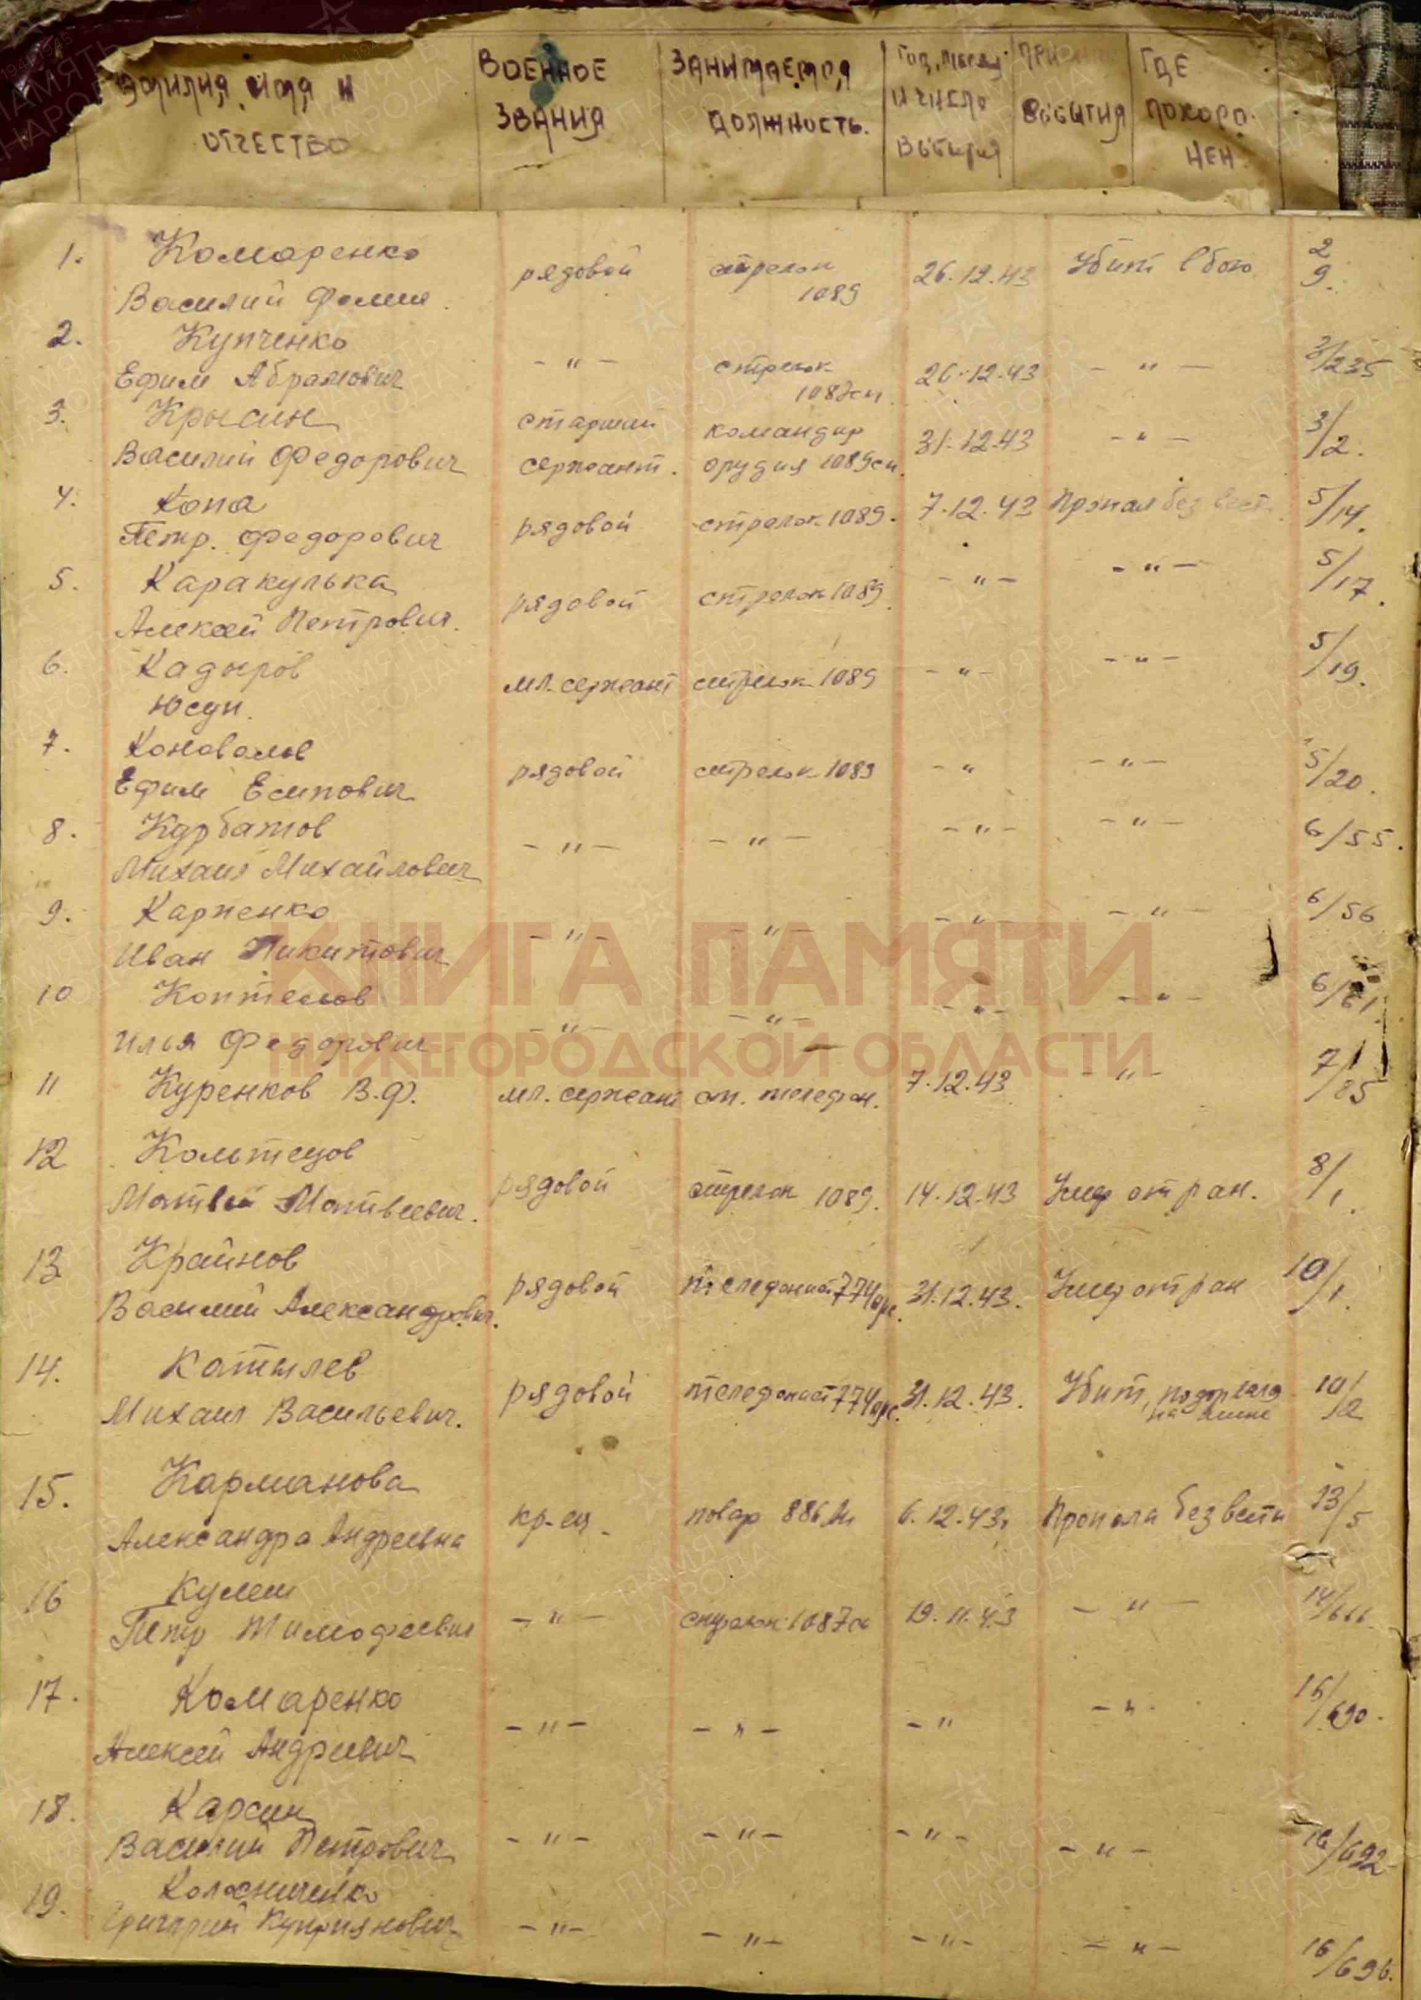 Фамилия, имя и отчество
Военное звания
Занимаемая должность.
Год, месяц и число выбытия
выбытия
Где похоронен
1. Комаренко
Василий Фомич. рядовой стрелок 1089 26.12.43 Убит в бою 2 9.
2. Купченко
Ефим Абрамович - " - стрелок 1087сп. 26.12.43 - " - 3/235
3. Крысин старший командир
Василий Федорович сержант. орудия 1089сп. 31.12.43 - " - 3/2.
4. Копа
Петр. Федорович рядовой стрелок 1089. 7.12.43 Пропал без вест. 5/14.
5. Каракулька
Алексей Петрович. рядовой стрелок 1089. - " - - " - 5/17.
6. Кадыров
Юсуп. мл. сержант стрелок 1089 - " - - " - 5/19.
7. Коновалов
Ефим Есипович рядовой стрелок 1089 - " - " - 5/20.
8. Курбатов
Михаил Михайлович - " - - " - - " - - " - 6/55.
9. Карпенко
Иван Никитович - " - - " - - " - - " - 6/56
10 Коптелов
Илья Федорович - " - - " - - " - - " - 6/61
11 Куренков В.Ф. мл. сержант ст. телефон. 7.12.43 - " - 7/85
12 Кольтецов
Матвей Матвеевич. рядовой стрелок 1089. 14.12.43 Умер от ран. 8/1.
13 Крайнов
Василий Александрович. рядовой телефонист 774 31.12.43. Умер от ран 10/1.
14. Катылев
Михаил Васильевич. рядовой телефонист 774 31.12.43. Убит, подорвался на мине 10/2
15. Карманова
Александра Андреевна кр-ец. повар 886 6.12.43. Пропала без вести 13/5
16 Кулеш
Петр Тимофеевич - " - стрелок 1087сп 19.11.43 - " -
17. Комаренко
Алексей Андреевич - " - - " - - " - " - 16/690.
18. Карсин
Василий Петрович - " - - " - - " - - " - 16/692
19. Колесниченко
Григорий Куприянович - " - - " - - " - - " - 16/696.
КНИГА ПАМЯТИ
НИЖЕГОРОДСКОЙ ОБЛАСТИ